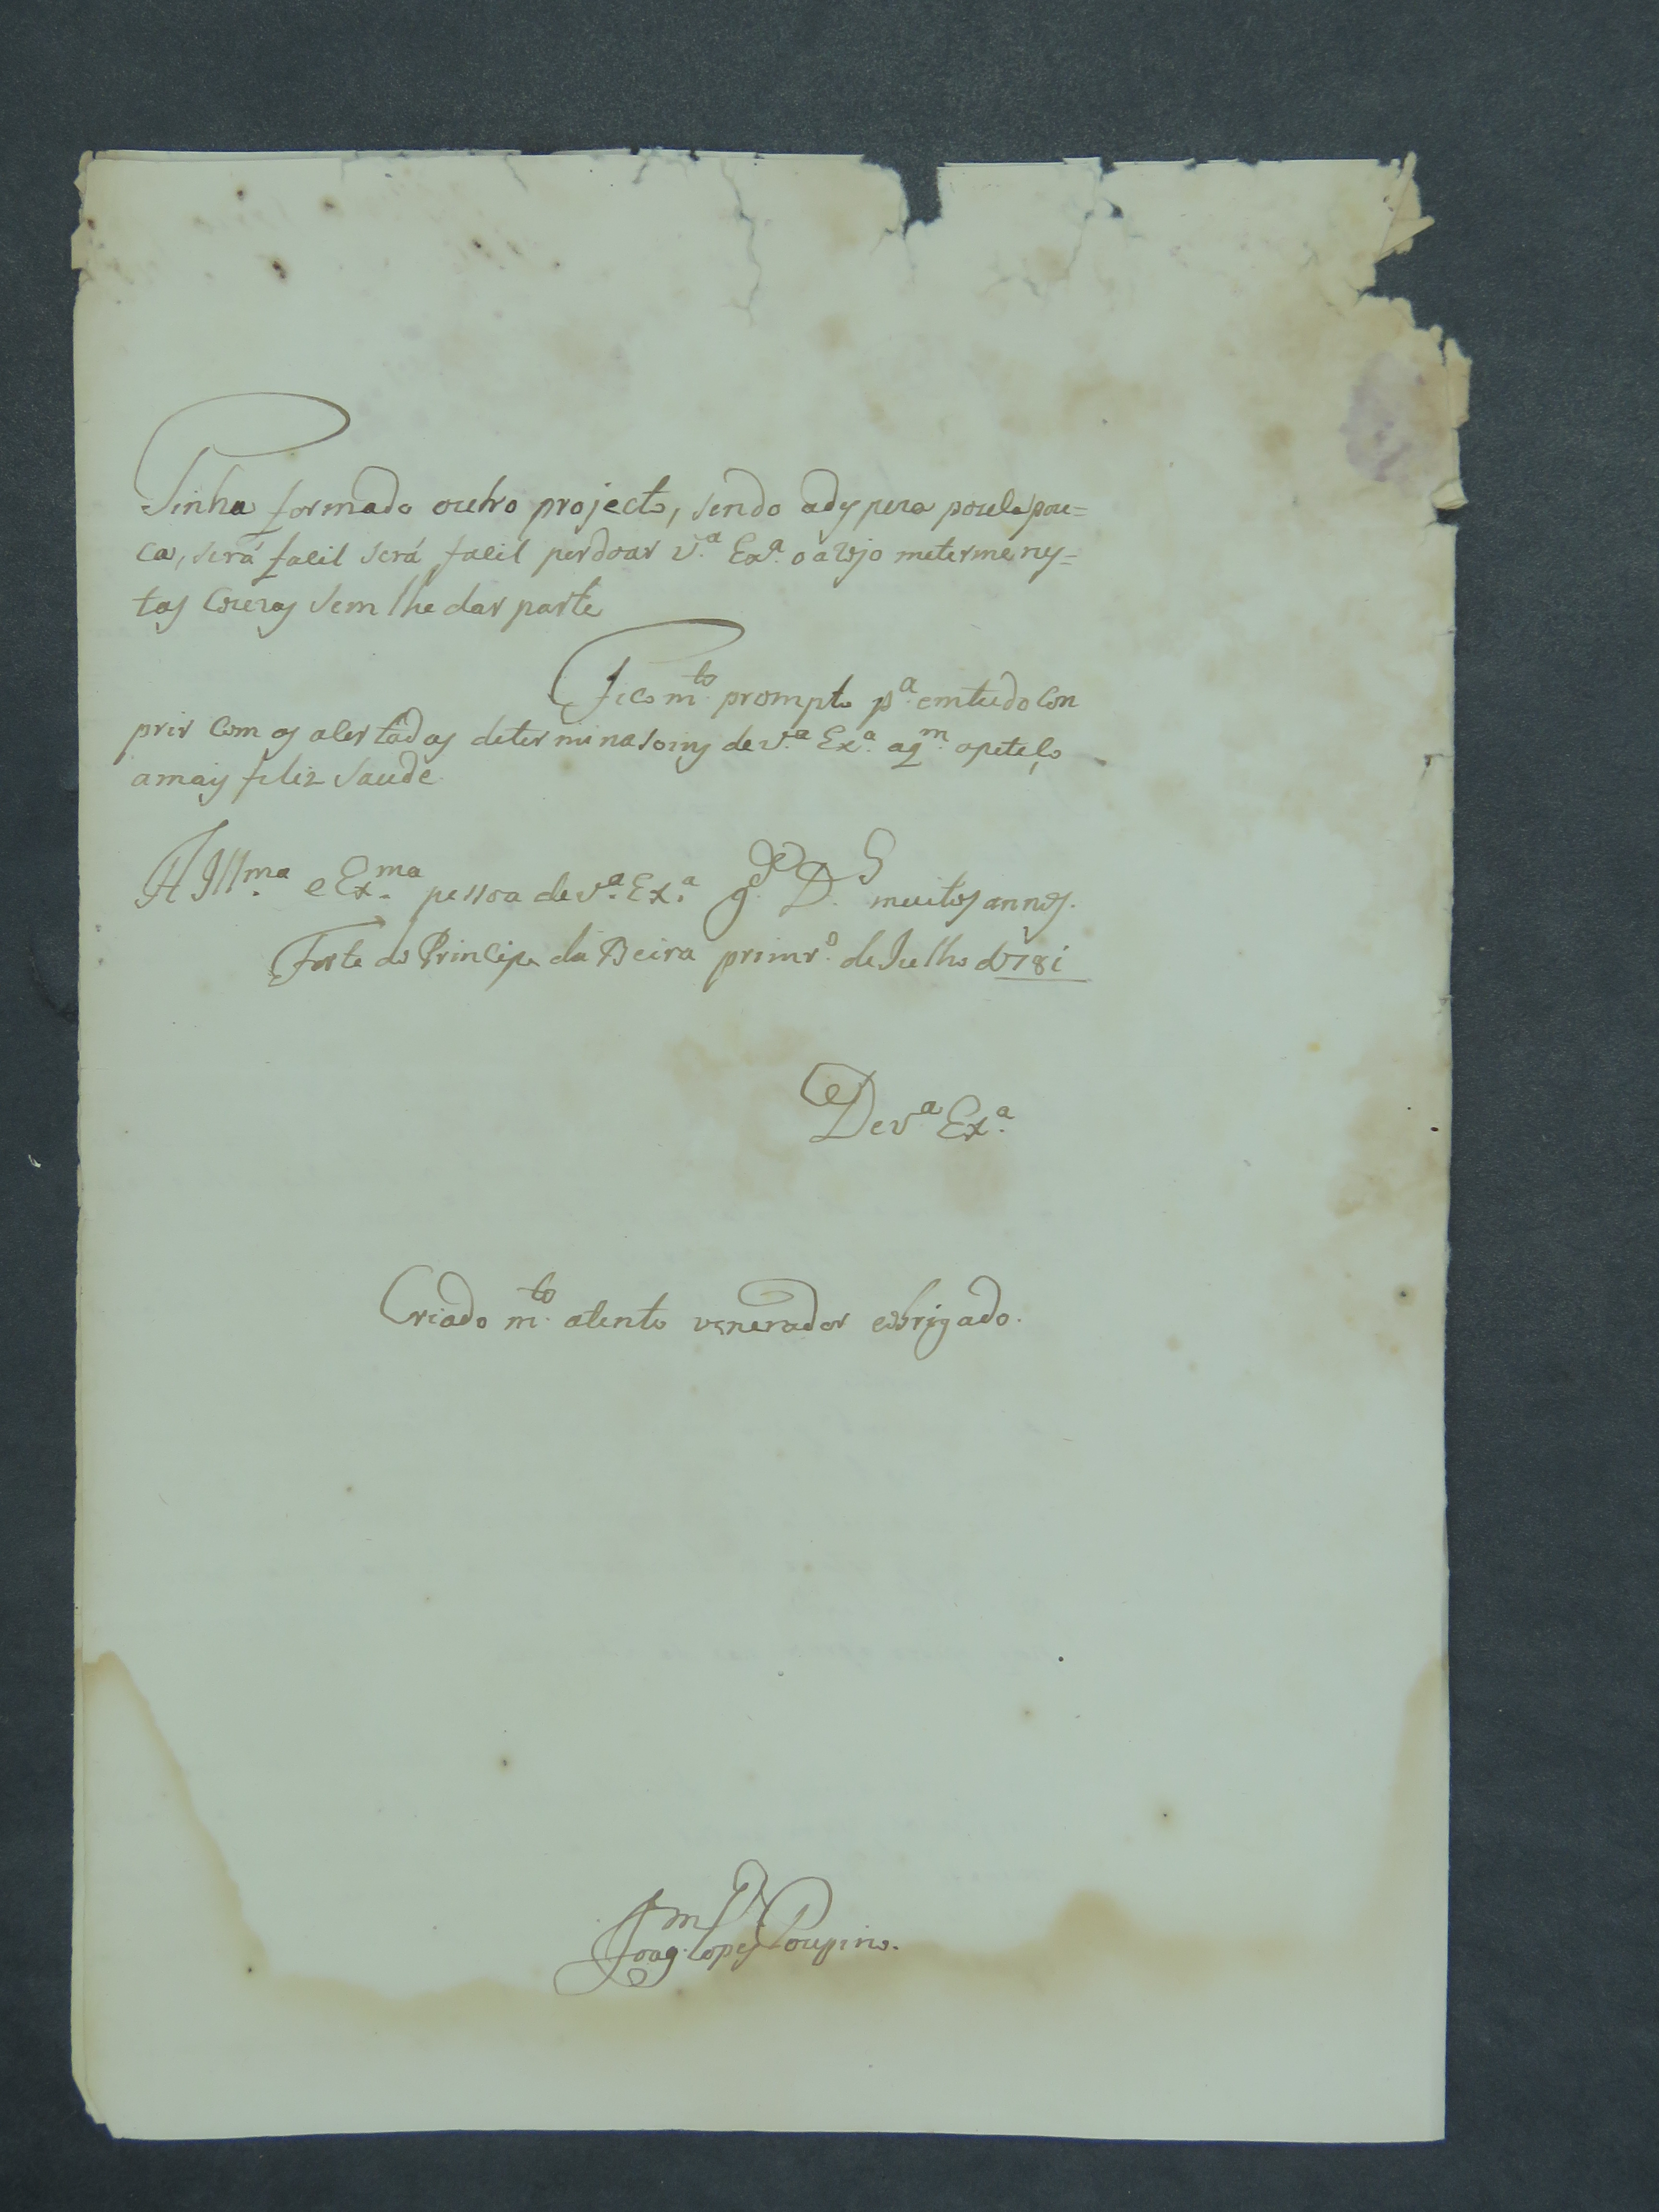 Tinha formado outro projecto, sendo adespeza pouela pou=
ca, será facil será facil perdoar V.ª Exª. o arojo meterme nes=
tas Couzas sem lhe dar parte
Fico m.to prompto p.ª emtudo Con
prir Com as asertadas determinasoins de V.ª Ex.ª aq.m apeteso
amais filiz saude
A Ill.ma e Ex.ma pessoa de V.ª Ex.ª g.de D.s muitos annos.
Forte do Principe da Beira primr.o de Julho d 1781
De V.ª Ex.ª
Criado m.to atento venerador eobrigado.
Joaq.m Lopes Poupino.